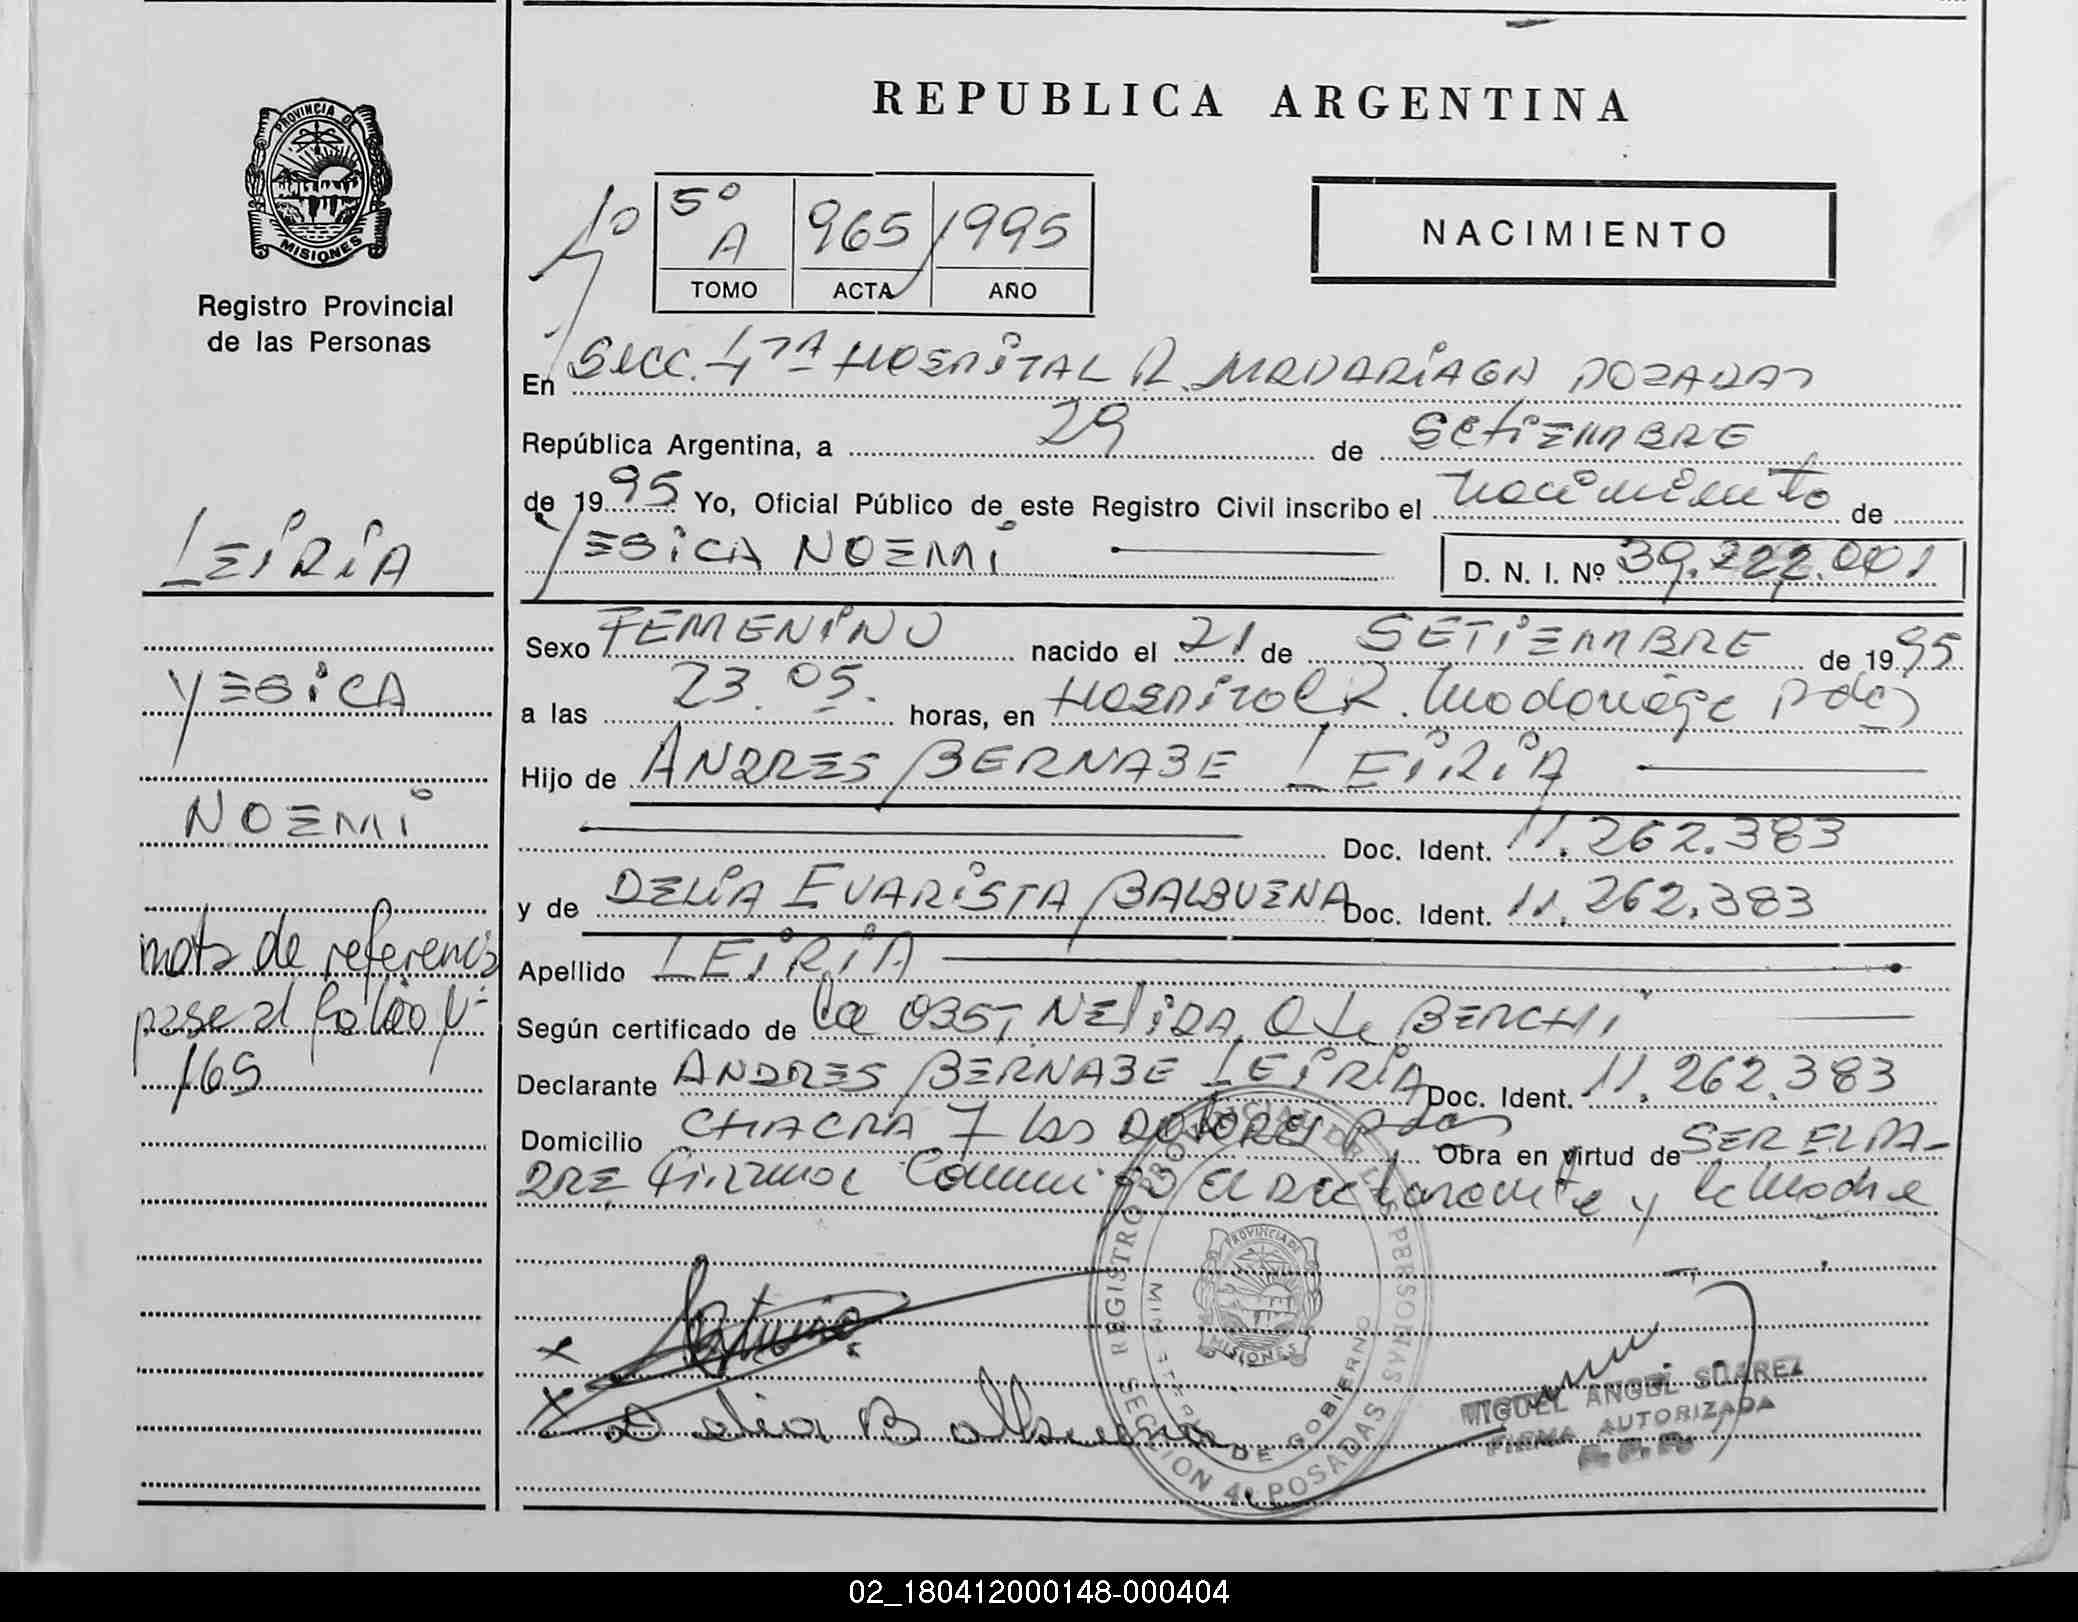 REPUBLICA ARGENTINA
PROVINCIA DE
MISIONES
Registro Provincial
de las Personas
5º
A 965 1995
TOMO ACTA AÑO
NACIMIENTO
En Secc. 4ta HOSPITAL R. MADARIAGA POSADAS
República Argentina, a 29 de SETIEMBRE
de 1995 Yo, Oficial Público de este Registro Civil inscribo el nacimiento de
YESICA NOEMI D. N. I. Nº 39.222.001
Sexo FEMENINO nacido el 21 de SETIEMBRE de 1995
a las 23.05. horas, en HOSPITAL R. Madariaga Pdas
Hijo de ANDRES BERNABE LEIRIA
Doc. Ident. 11.262.383
y de DELIA EVARISTA BALBUENA Doc. Ident. 11.262.383
Apellido LEIRIA
Según certificado de la OBST NELIDA BERCHI
Declarante ANDRES BERNABE LEIRIA Doc. Ident. 11.262.383
Domicilio CHACRA 7 las DOLORES Pdas Obra en virtud de SER EL PA-
DRE Firman Conmigo El Declarante y la Madre
Delia Balbuena
REGISTRO PROVINCIAL DE LAS PERSONAS
MINISTERIO DE GOBIERNO
PROVINCIA DE
MISIONES
SECCION 4ª POSADAS
MIGUEL ANGEL SUAREZ
FIRMA AUTORIZADA
R. P. P.
LEIRIA
YESICA
NOEMI
nota de referencia
pase al folio Nº
165
02_180412000148-000404